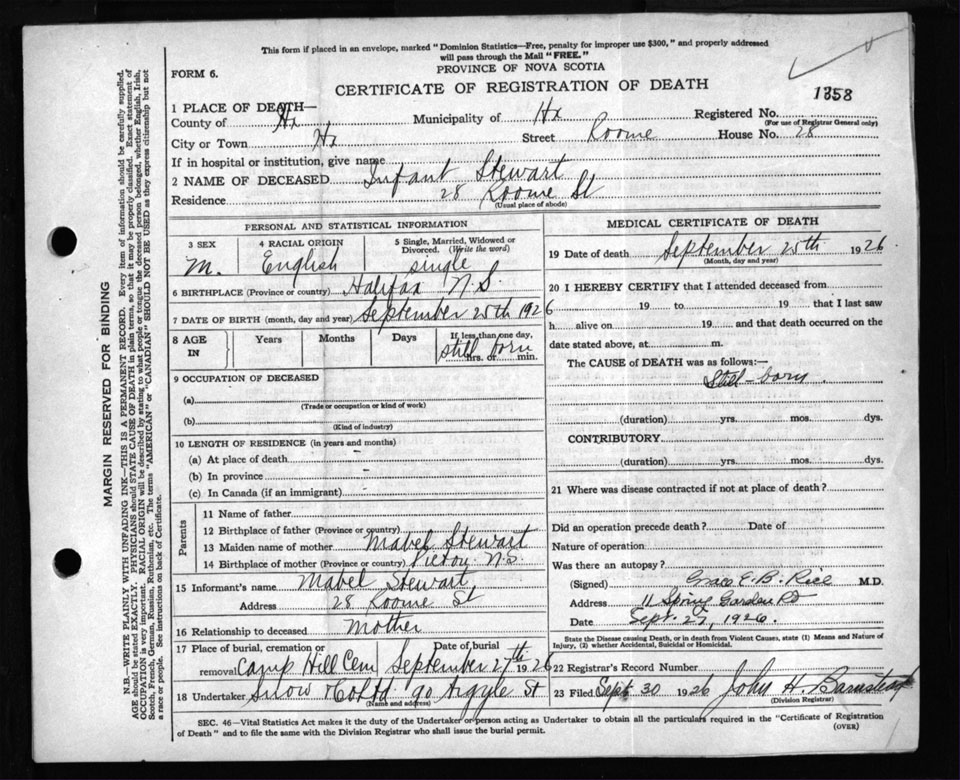 This form if placed in an envelope, marked "Dominion Statistics—Free, penalty for improper use $300," and properly addressed
will pass through the Mail "FREE."
PROVINCE OF NOVA SCOTIA
FORM 6.
CERTIFICATE OF REGISTRATION OF DEATH
1358
1 PLACE OF DEATH—
County of Hx Municipality of Hx Registered No.
(For use of Registrar General only)
City or Town Hx Street Roome House No. 28
If in hospital or institution, give name
2 NAME OF DECEASED Infant Stewart
Residence 28 Roome St
(Usual place of abode)
PERSONAL AND STATISTICAL INFORMATION
3 SEX 4 RACIAL ORIGIN 5 Single, Married, Widowed or Divorced. (Write the word)
M. English single
6 BIRTHPLACE (Province or country) Halifax N.S.
7 DATE OF BIRTH (month, day and year) September 25th 1926
8 AGE IN Years Months Days If less than one day, hrs. or min.
still born
9 OCCUPATION OF DECEASED
(a)
(Trade or occupation or kind of work)
(b)
(Kind of industry)
10 LENGTH OF RESIDENCE (in years and months)
(a) At place of death
(b) In province
(c) In Canada (if an immigrant)
Parents
11 Name of father
12 Birthplace of father (Province or country)
13 Maiden name of mother Mabel Stewart
14 Birthplace of mother (Province or country) Pictou N.S.
15 Informant's name Mabel Stewart
Address 28 Roome St
16 Relationship to deceased Mother
17 Place of burial, cremation or removal Camp Hill Cem Date of burial September 27th 1926
18 Undertaker Snow & Co Ltd 90 Argyle St
(Name and address)
MEDICAL CERTIFICATE OF DEATH
19 Date of death September 25th 1926
(Month, day and year)
20 I HEREBY CERTIFY that I attended deceased from
19 to 19 that I last saw
h alive on 19 and that death occurred on the
date stated above, at m.
The CAUSE OF DEATH was as follows:—
Still-born.
(duration) yrs. mos. dys.
CONTRIBUTORY
(duration) yrs. mos. dys.
21 Where was disease contracted if not at place of death?
Did an operation precede death? Date of
Nature of operation
Was there an autopsy?
(Signed) Grace E. B. Rice M.D.
Address 11 Spring Garden Rd
Date Sept. 27, 1926.
State the Disease causing Death, or in death from Violent Causes, state (1) Means and Nature of
Injury, (2) whether Accidental, Suicidal or Homicidal.
22 Registrar's Record Number
23 Filed Sept 30 1926 John H. Barnstead
(Division Registrar)
SEC. 46—Vital Statistics Act makes it the duty of the Undertaker or person acting as Undertaker to obtain all the particulars required in the "Certificate of Registration
of Death" and to file the same with the Division Registrar who shall issue the burial permit.
(OVER)
MARGIN RESERVED FOR BINDING
N.B.—WRITE PLAINLY WITH UNFADING INK—THIS IS A PERMANENT RECORD. Every item of information should be carefully supplied.
AGE should be stated EXACTLY. PHYSICIANS should STATE CAUSE OF DEATH in plain terms, so that it may be properly classified. Exact statement of
OCCUPATION is very important. RACIAL ORIGIN will be described by stating to what people or tongue the deceased person belonged, whether English, Irish,
Scotch, French, German, Russian, Ruthenian, etc. The terms "AMERICAN" or "CANADIAN" SHOULD NOT BE USED as they express citizenship but not
a race or people. See instructions on back of Certificate.